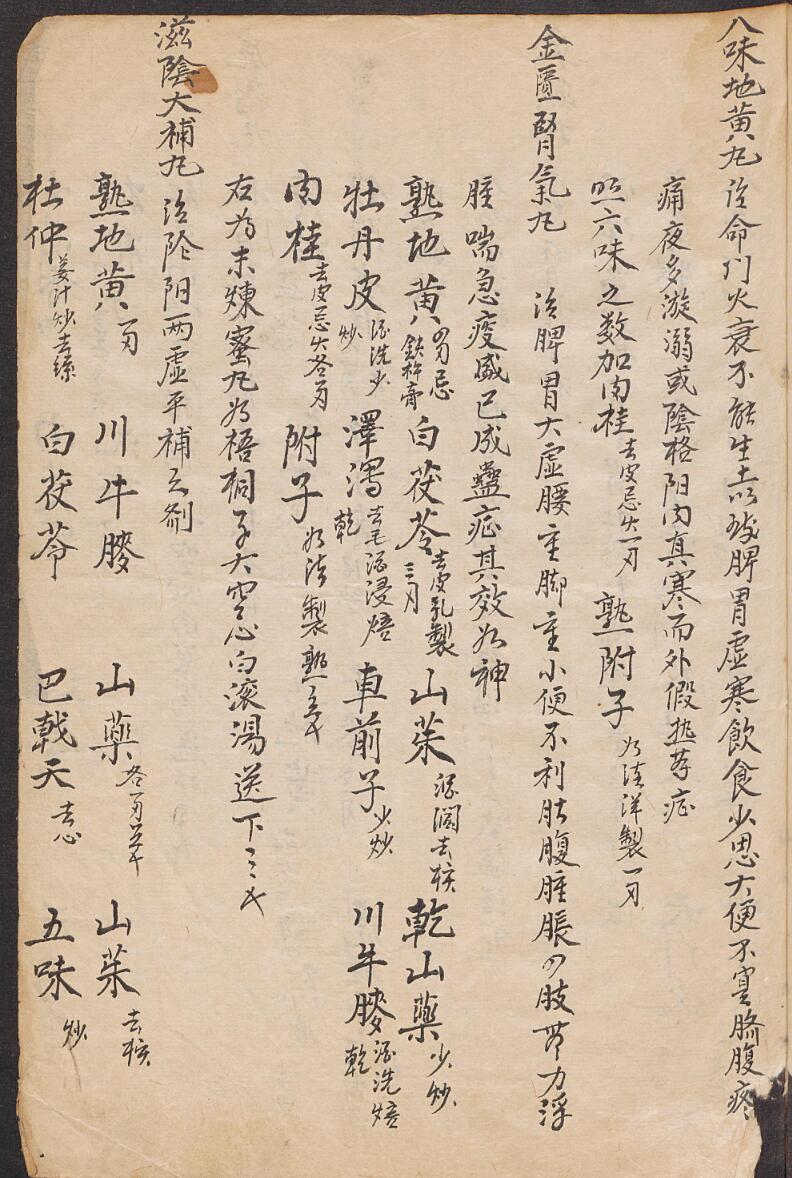 八味地黄丸 治命门火衰不能生土以致脾胃虚寒飲食少思大便不實臍腹疼
痛夜多漩溺或陰格阳内真寒而外假热等症
照六味之数加肉桂去皮忌火一刄 熟附子 如法泽製一刄
金匱腎氣丸 治脾胃大虚腰重脚重小便不利肚腹腫脹四肢無力浮
腫喘急痰盛已成蠱症其效如神
熟地黄四刄忌鉄杵膏 白茯苓去皮乳製三刄 山茱酒潤去核 乾山藥少炒
牡丹皮酒洗少炒 澤瀉去毛酒浸焙乾 車前子少炒 川牛膝酒洗焙乾
肉桂去皮忌火各刄 附子如法製熟五才
右为末煉蜜丸如梧桐子大空心白滚湯送下三才
滋陰大補丸 治阴阳两虚平補之剂
熟地黄二刄 川牛膝 山藥各刄五才 山茱去核
杜仲姜汁炒去絲 白茯苓 巴戟天去心 五味炒